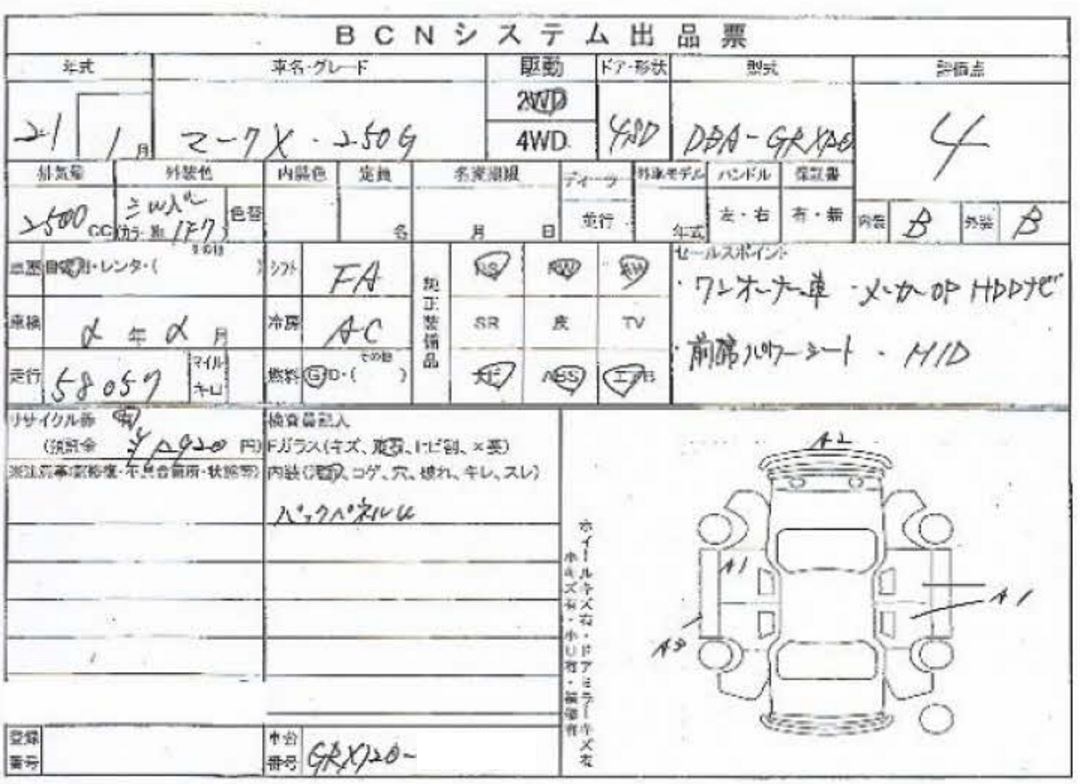 BCNシステム出品票
年式 車名・グレード 駆動 ドア・形状 型式 評価点
21 1月 マークX・250G 2WD 4WD 4SD DBA-GRX120 4
排気量 外装色 内装色 定員 名変期限 ディーラー 外車モデル ハンドル 保証書
2500cc カラーNo. 1F7 色替 名 月 日 並行 年式 左・右 有・無 内装 B 外装 B
車歴 自家用・レンタ・( その他 ) シフト FA 純正装備品 PS PW AW セールスポイント
・ワンオーナー車 ・メーカーOP HDDナビ
車検 年 月 冷房 AC SR 皮 TV
・前席パワーシート ・HID
走行 58057 マイル キロ 燃料 G・D・( その他 ) ナビ ABS エアB
リサイクル券 有 検査員記入
(預託金 円) Fガラス(キズ、飛石、トビ割、×要)
※注意事項(修復・不具合箇所・状態等) 内装(汚れ、コゲ、穴、破れ、キレ、スレ)
バックパネルU
ホイールキズ有・ドアミラーキズ有
小キズ有・小U有・補修有
A2
A1
A1
登録番号 車台番号 GRX120-